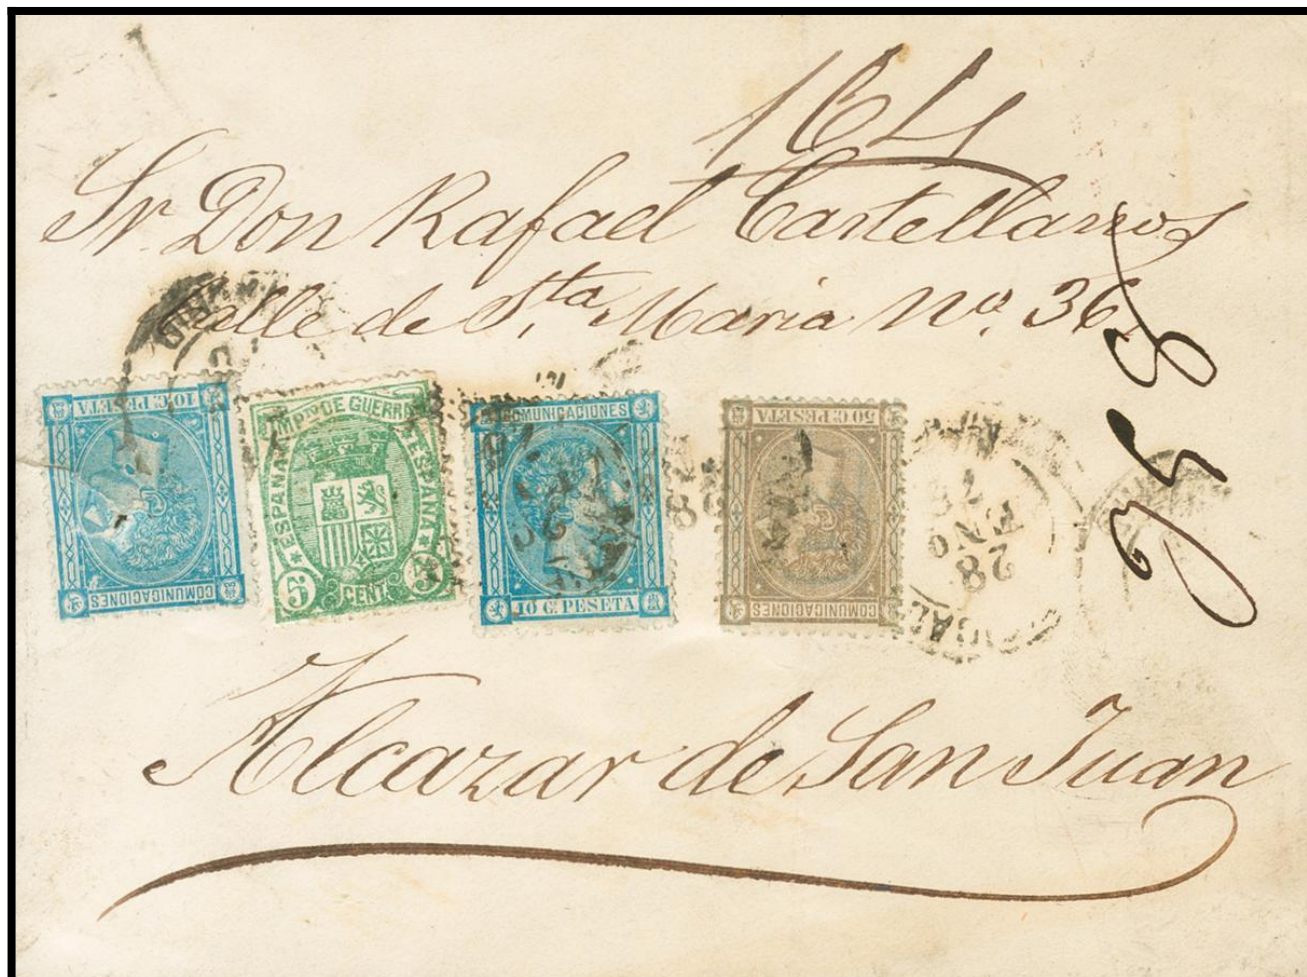 164
Sr. Don Rafael Castellanos
Calle de Sta. Maria No. 36
10 C. PESETA
COMUNICACIONES
IMPTO DE GUERRA
ESPAÑA
ESPAÑA
5 CENT. 5
COMUNICACIONES
10 C. PESETA
50 C. PESETA
COMUNICACIONES
28
ENO
Alcazar de San Juan